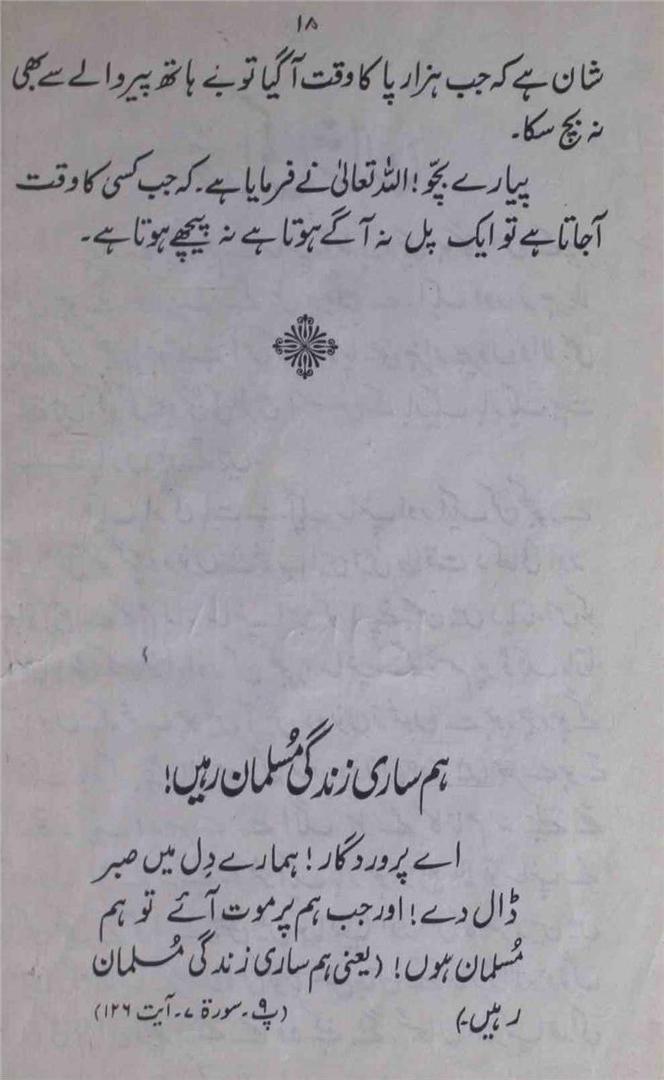 ۱۸
شان ہے کہ جب ہزار پا کا وقت آگیا تو بے ہاتھ پیر والے سے بھی
نہ بچ سکا۔
پیارے بچّو! اللہ تعالیٰ نے فرمایا ہے۔ کہ جب کسی کا وقت
آجاتا ہے تو ایک پل نہ آگے ہوتا ہے نہ پیچھے ہوتا ہے۔
ہم ساری زندگی مُسلمان رہیں!
اے پروردگار! ہمارے دِل میں صبر
ڈال دے! اور جب ہم پر موت آئے تو ہم
مُسلمان ہوں! (یعنی ہم ساری زندگی مُسلمان
رہیں۔) (پ۹۔ سورۃ ۷۔ آیت ۱۲۶)